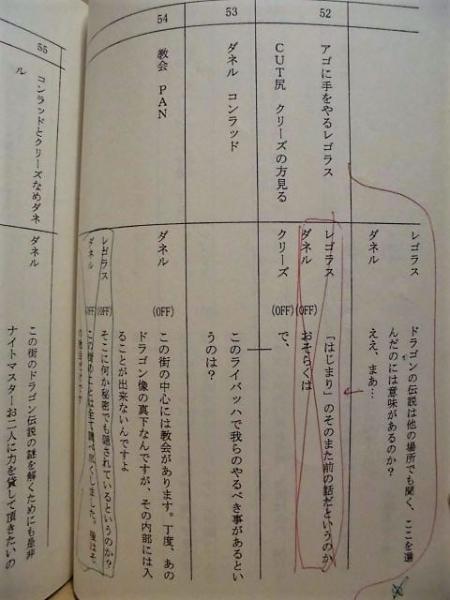 レゴラス ドラゴンの伝説は他の場所でも聞く、ここを選
んだのには意味があるのか？
ダネル ええ、まあ…
52
アゴに手をやるレゴラス
CUT尻 クリーズの方見る
レゴラス (OFF) 「はじまり」のそのまた前の話だというのか
ダネル (OFF) おそらくは
クリーズ で、
53
ダネル コンラッド
このライバッハで我らのやるべき事があるとい
うのは？
54
教会 PAN
ダネル (OFF) この街の中心には教会があります。丁度、あの
ドラゴン像の真下なんですが、その内部には入
ることが出来ないんですよ
レゴラス (OFF) そこに何か秘密でも隠されているというのか？
ダネル (OFF) この街のことは全て調べ尽くしました。後はそ
55
コンラッドとクリーズなめダネ
ル
ダネル この街のドラゴン伝説の謎を解くためにも是非
ナイトマスターお二人に力を貸して頂きたいの